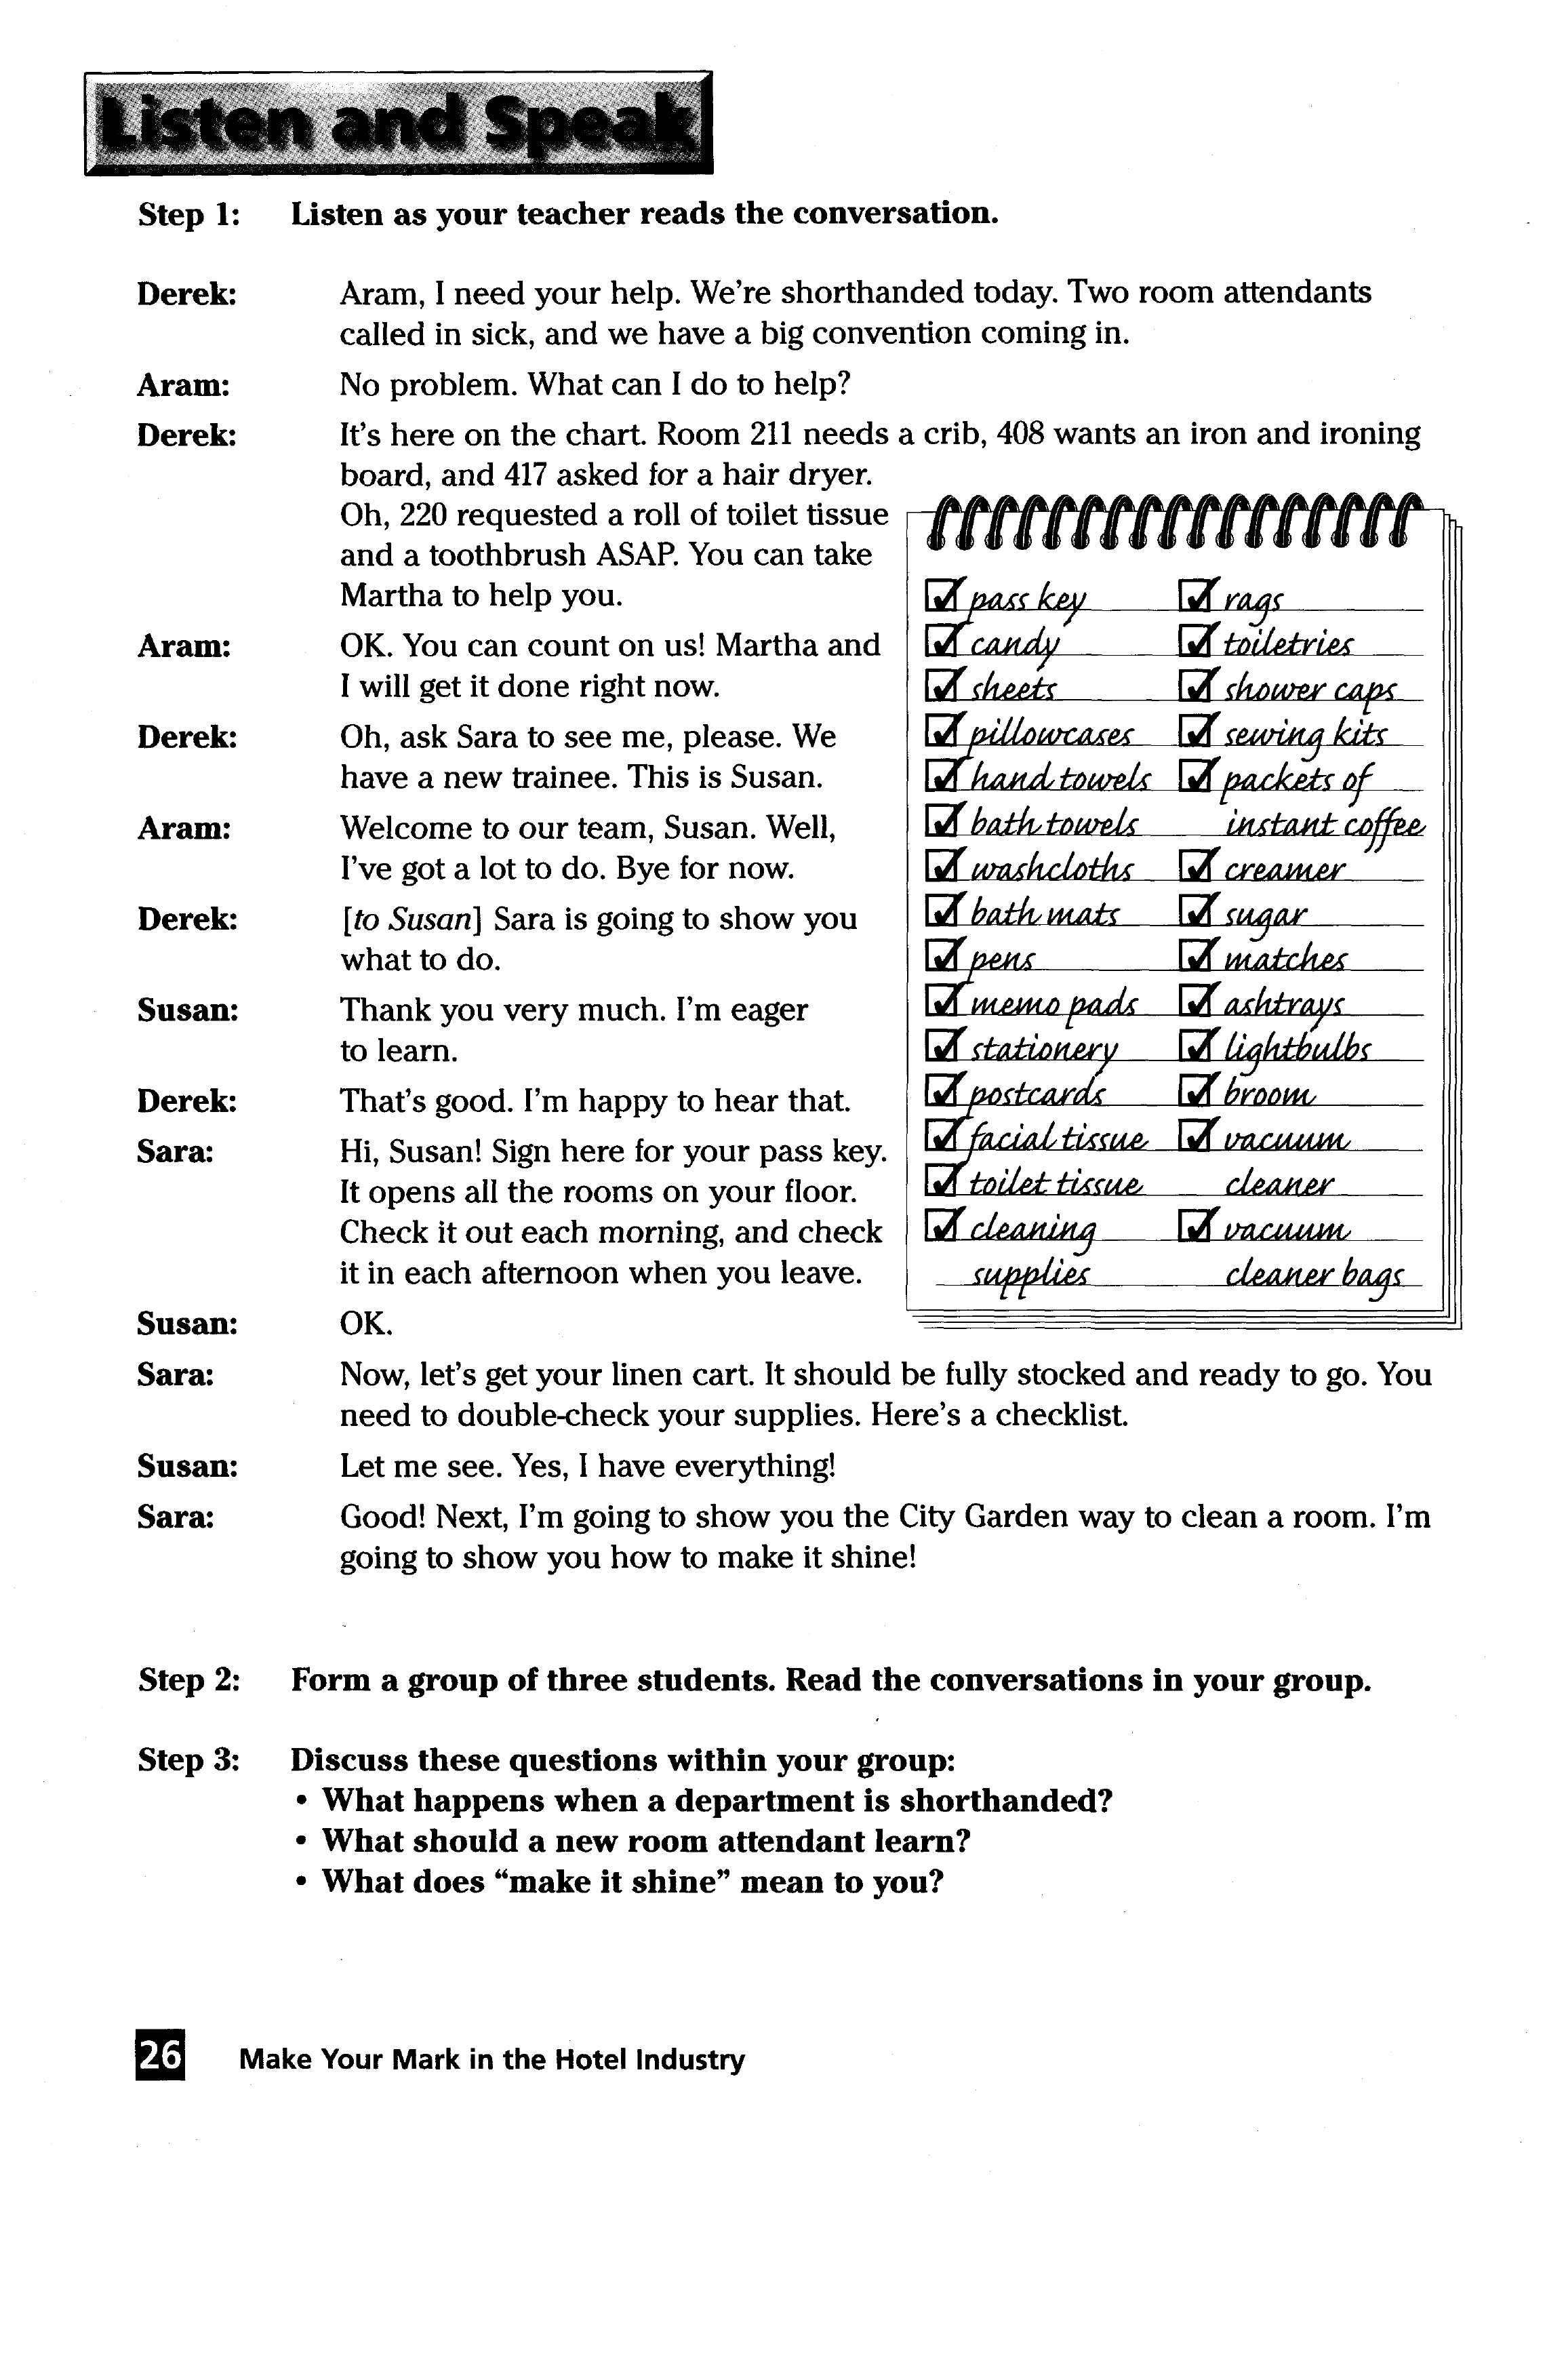 Listen and Speak
Step 1: Listen as your teacher reads the conversation.
Derek: Aram, I need your help. We're shorthanded today. Two room attendants
called in sick, and we have a big convention coming in.
Aram: No problem. What can I do to help?
Derek: It's here on the chart. Room 211 needs a crib, 408 wants an iron and ironing
board, and 417 asked for a hair dryer.
Oh, 220 requested a roll of toilet tissue
and a toothbrush ASAP. You can take
Martha to help you.
Aram: OK. You can count on us! Martha and
I will get it done right now.
Derek: Oh, ask Sara to see me, please. We
have a new trainee. This is Susan.
Aram: Welcome to our team, Susan. Well,
I've got a lot to do. Bye for now.
Derek: [to Susan] Sara is going to show you
what to do.
Susan: Thank you very much. I'm eager
to learn.
Derek: That's good. I'm happy to hear that.
Sara: Hi, Susan! Sign here for your pass key.
It opens all the rooms on your floor.
Check it out each morning, and check
it in each afternoon when you leave.
Susan: OK.
Sara: Now, let's get your linen cart. It should be fully stocked and ready to go. You
need to double-check your supplies. Here's a checklist.
Susan: Let me see. Yes, I have everything!
Sara: Good! Next, I'm going to show you the City Garden way to clean a room. I'm
going to show you how to make it shine!
pass key
candy
sheets
pillowcases
hand towels
bath towels
washcloths
bath mats
pens
memo pads
stationery
postcards
facial tissue
toilet tissue
cleaning
supplies
rags
toiletries
shower caps
sewing kits
packets of
instant coffee
creamer
sugar
matches
ashtrays
lightbulbs
broom
vacuum
cleaner
vacuum
cleaner bags
Step 2: Form a group of three students. Read the conversations in your group.
Step 3: Discuss these questions within your group:
• What happens when a department is shorthanded?
• What should a new room attendant learn?
• What does "make it shine" mean to you?
26 Make Your Mark in the Hotel Industry